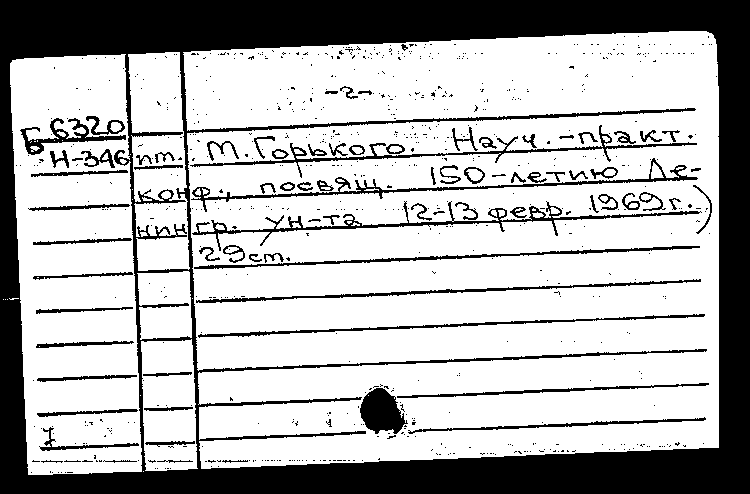 -2-
Б 6320
Н-346 пт. М. Горького. Науч.-практ.
конф., посвящ. 150-летию Ле-
нингр. ун-та 12-13 февр. 1969 г.)
29 ст.
I